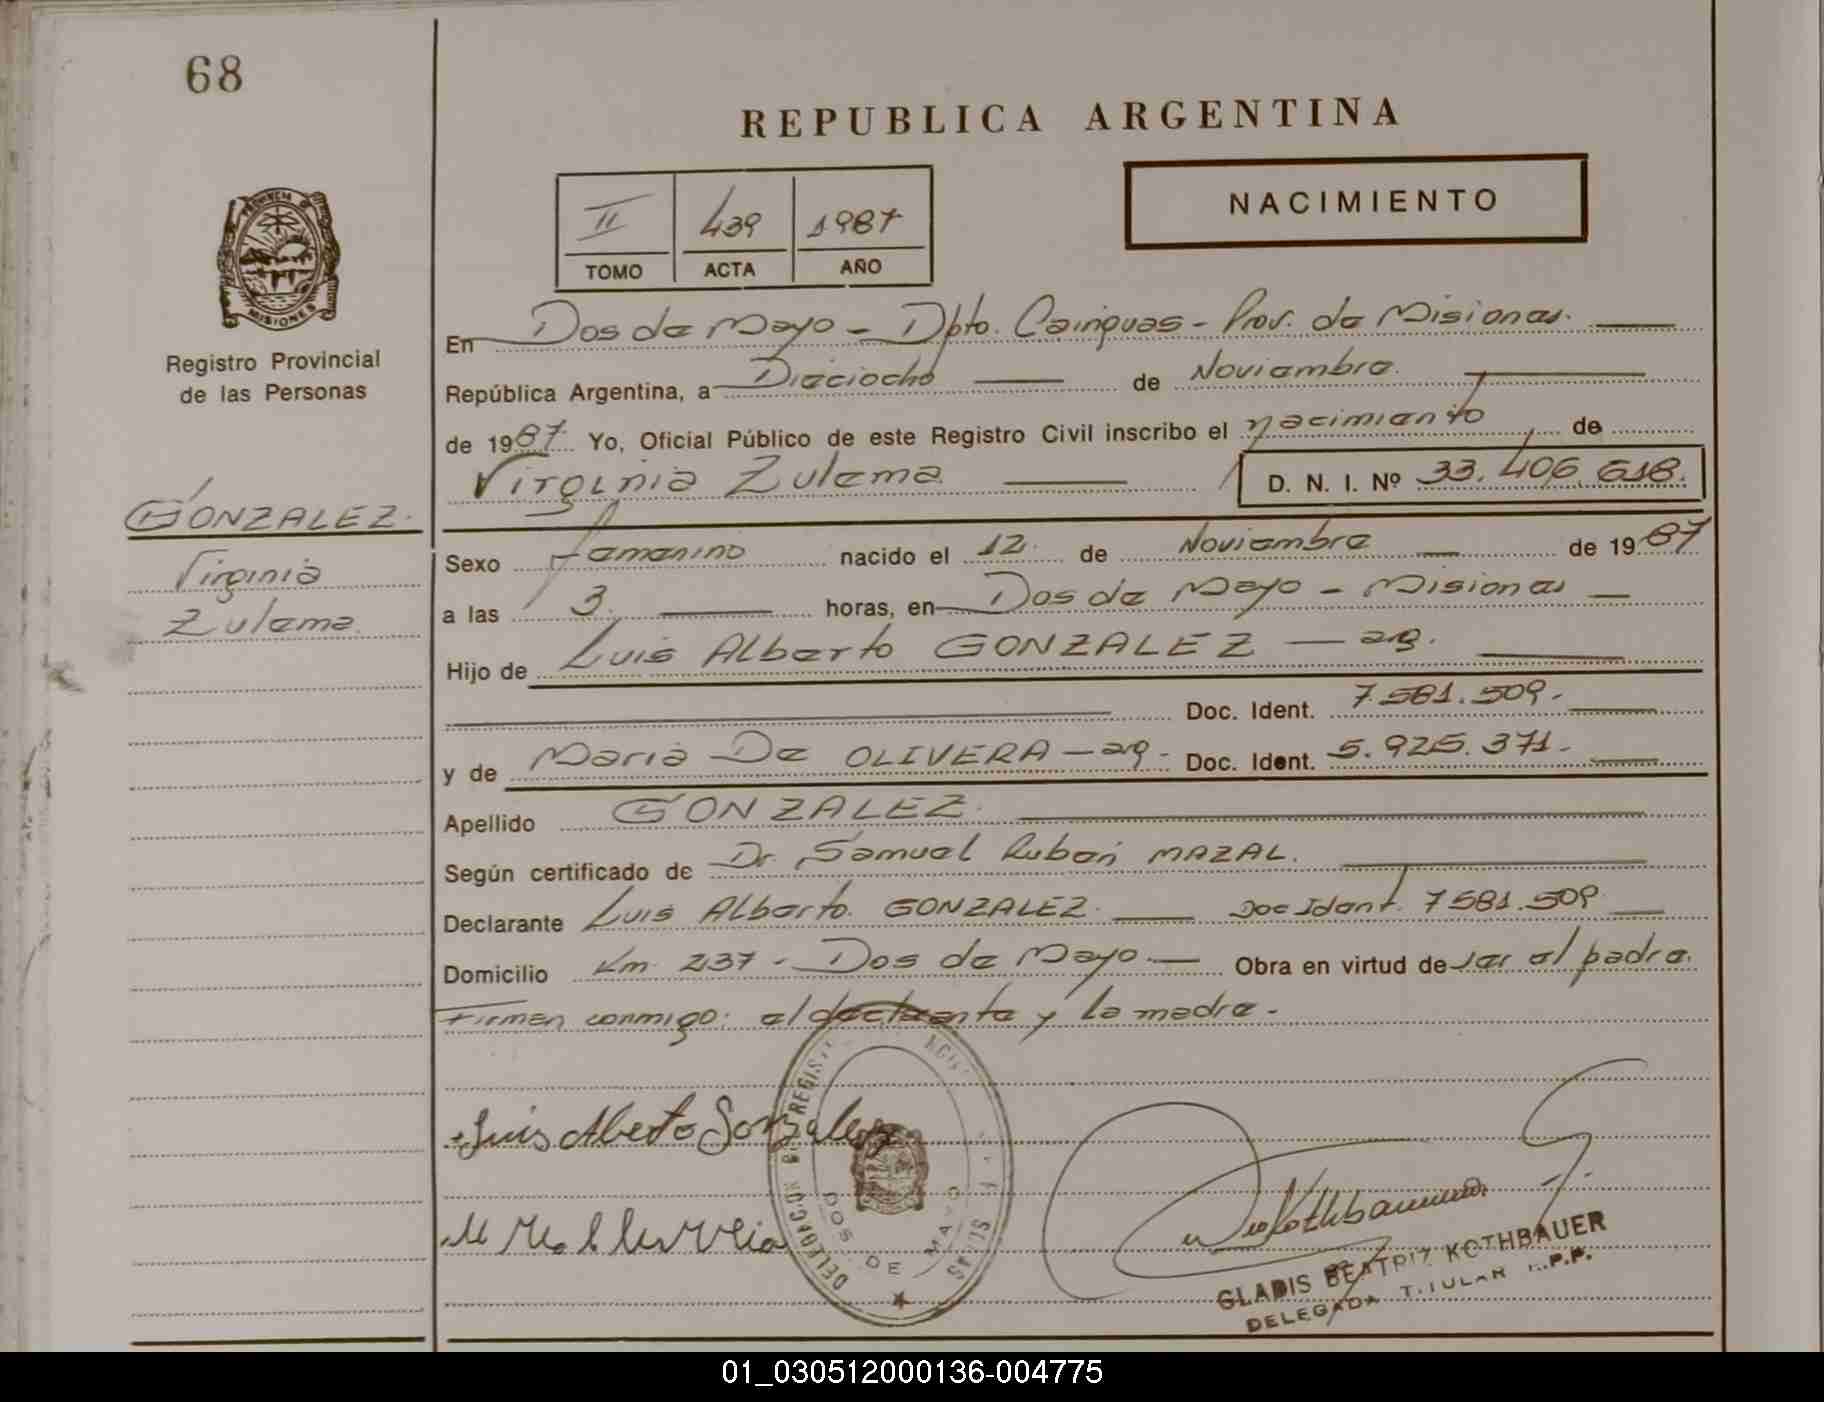 68
REPUBLICA ARGENTINA
II 439 1987
TOMO ACTA AÑO
NACIMIENTO
PROVINCIA DE
MISIONES
Registro Provincial
de las Personas
GONZALEZ.
Virginia
Zulema.
En Dos de Mayo - Dpto. Cainguas - Prov. de Misiones.
República Argentina, a Dieciocho de Noviembre.
de 1987. Yo, Oficial Público de este Registro Civil inscribo el nacimiento de
Virginia Zulema D. N. I. Nº 33.406.618.
Sexo femenino nacido el 12. de Noviembre de 1987
a las 3. horas, en Dos de Mayo - Misiones
Hijo de Luis Alberto GONZALEZ — arg.
Doc. Ident. 7.581.509.-
y de Maria De OLIVERA - arg - Doc. Ident. 5.925.371.-
Apellido GONZALEZ.
Según certificado de Dr. Samuel Ruben MAZAL.
Declarante Luis Alberto. GONZALEZ. Doc Ident. 7581.509.
Domicilio Km. 237 - Dos de Mayo.- Obra en virtud de ser el padre.
Firman conmigo: el declarante y la madre.-
Luis Alberto Gonzalez
DELEGACION REGIST
DOS DE MAYO
GLADIS BEATRIZ KOTHBAUER
DELEGADA TITULAR R.P.P.
01_030512000136-004775